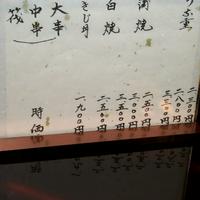 二三〇〇円
二八〇〇円
三三〇〇円
焼
二五〇〇円
三〇〇〇円
白焼
二五〇〇円
きじ丼
一九〇〇円
大串
中串
時価
筏